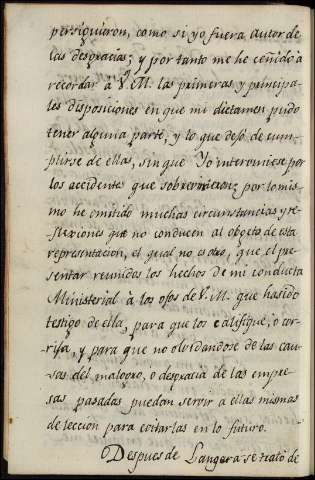 persiguieron, como si yo fuera autor de
las desgracias; y por tanto me he ceñido à
recordar à V.M. las primeras y principa-
les disposiciones en que mi dictamen pudo
tener alguna parte, y lo que dejó de cum-
plirse de ellas, sin que Yo interviniese por
los accidentes que sobrevinieron; por lo mis-
mo he emitido muchas circunstancias y re-
flexiones que no conducen al objeto de esta
representacion, el qual no es otro, que el pre-
sentar reunidos los hechos de mi conducta
Ministerial à los ojos de V.M. que ha sido
testigo de ella, para que los calìfique, ò cor-
rija, y para que no olvidandose de las cau-
sas del malogro, ò desgracia de las empre-
sas pasadas puedan servir à ellas mismas
de leccion para evitarlas en lo futuro.
Despues de Langara se trató de